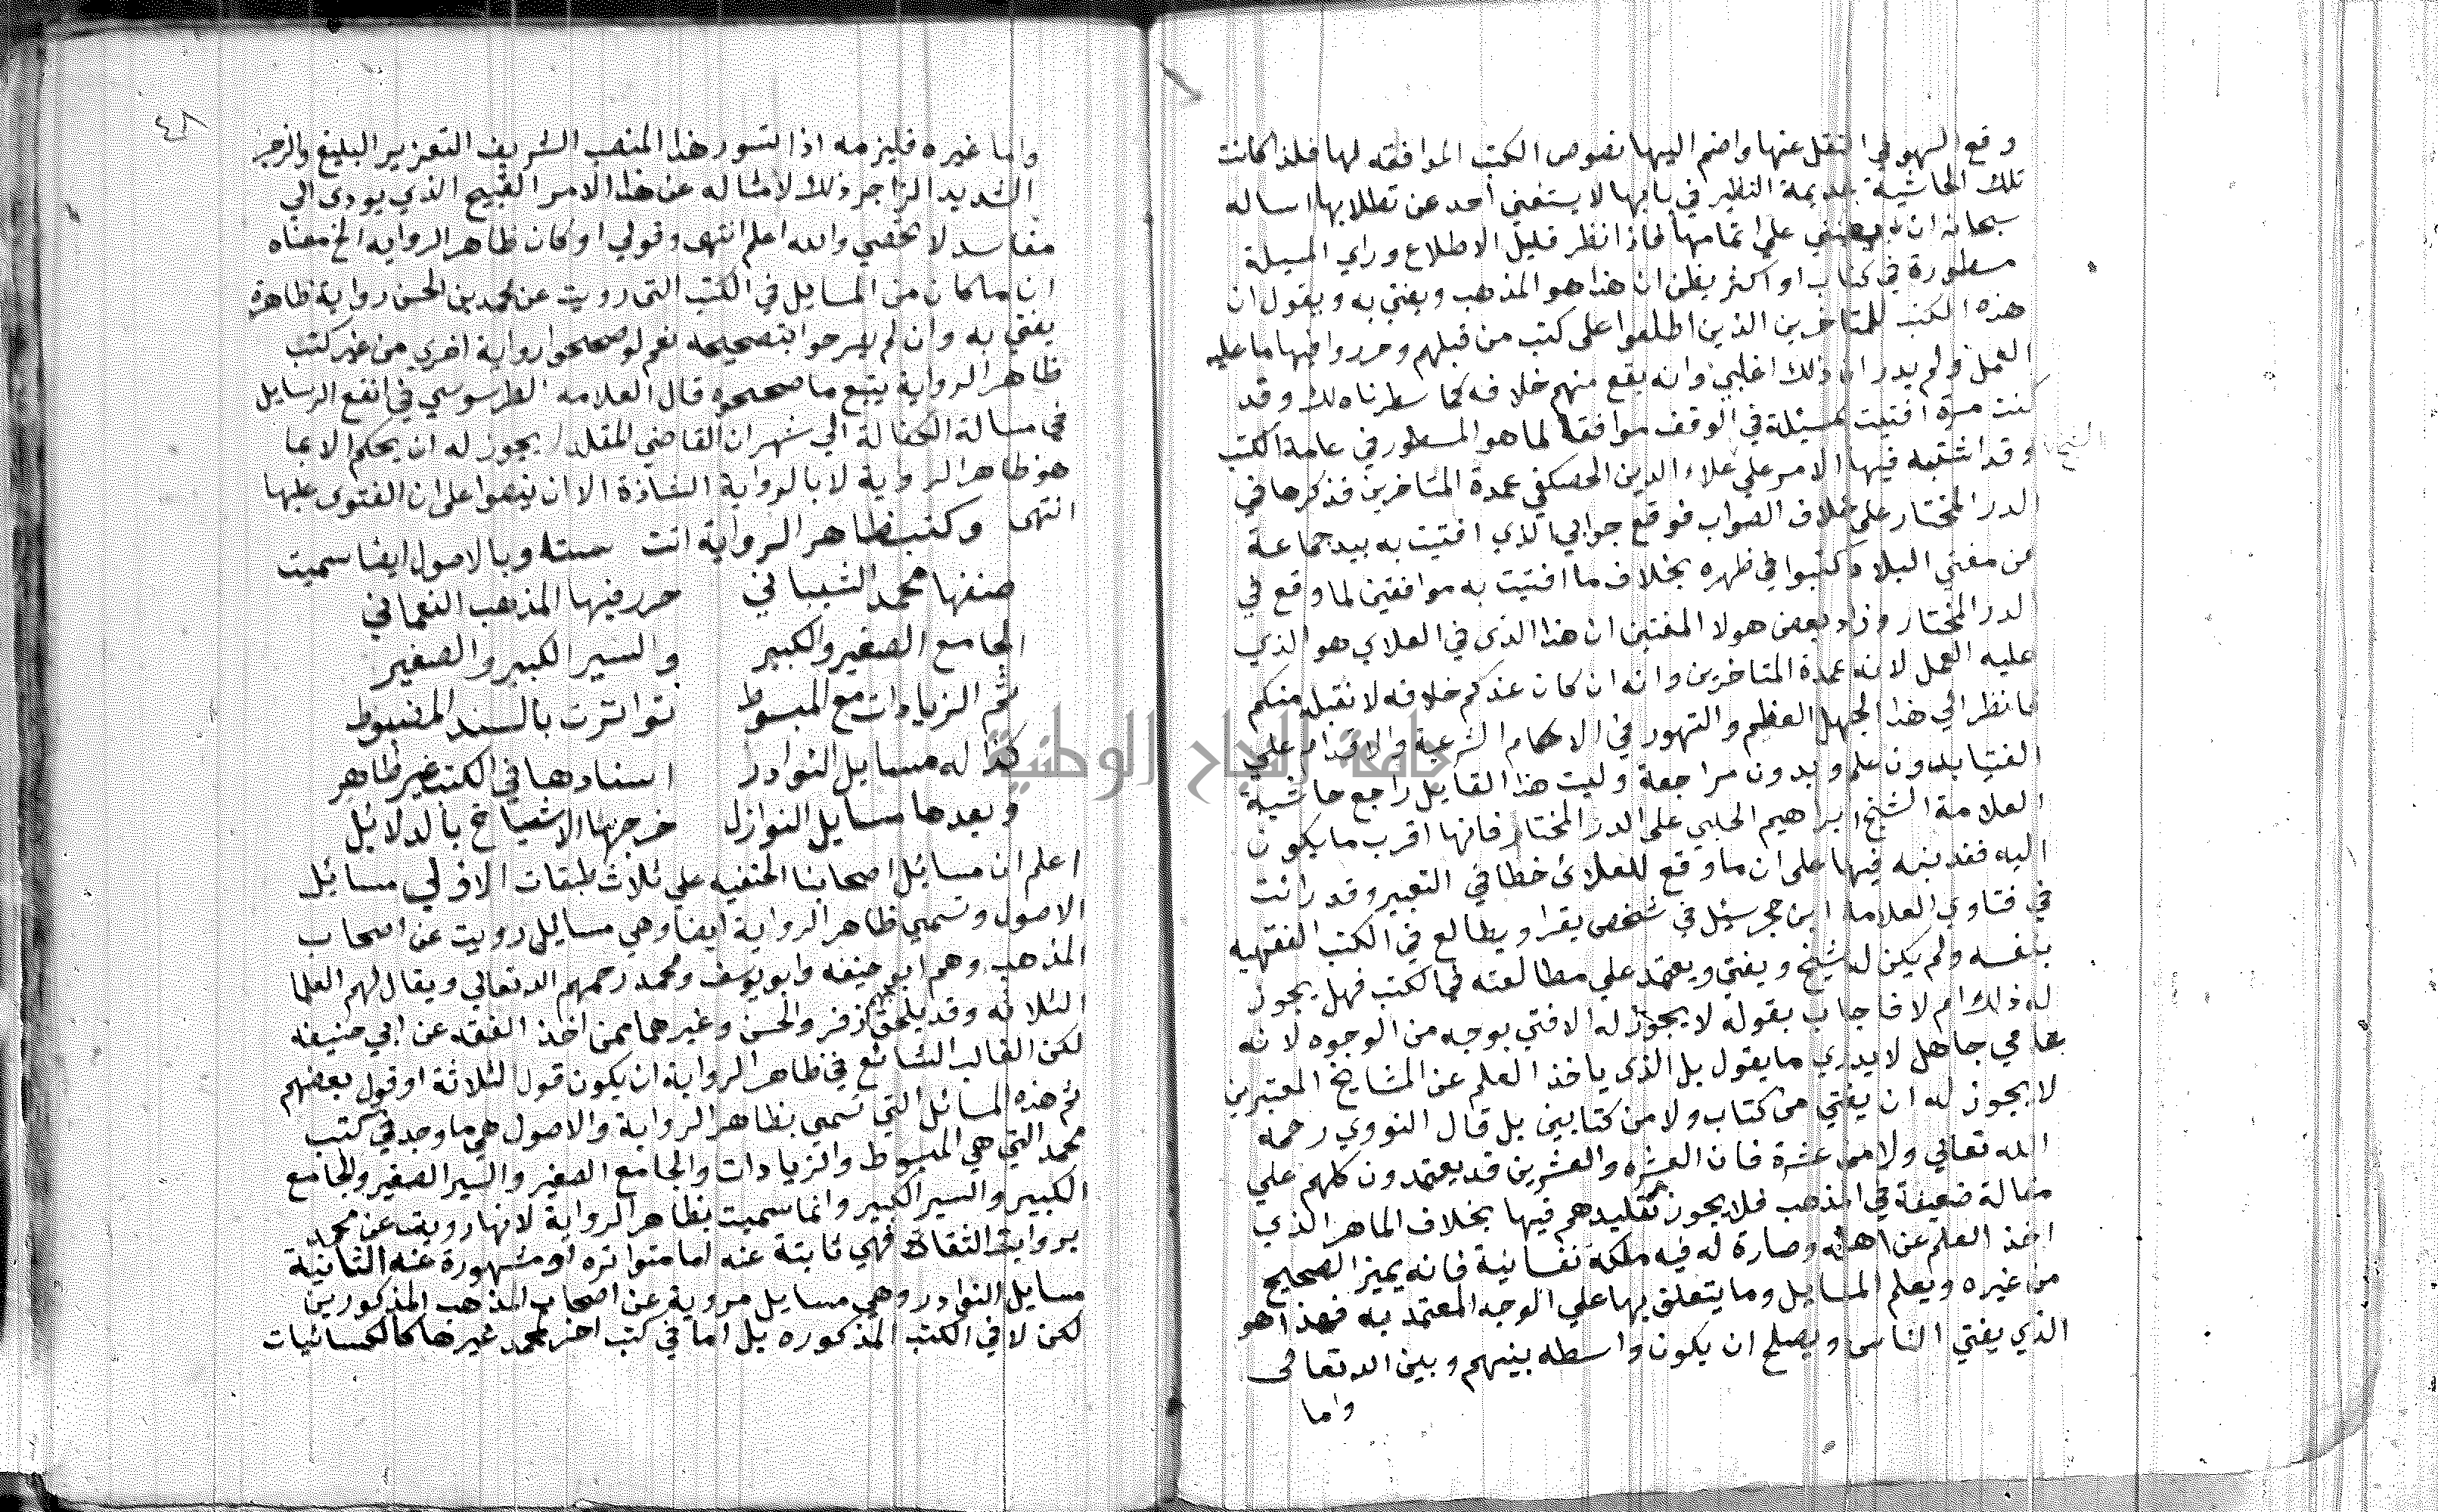 وقع السهو في النقل عنها واضم اليها نصوص الكتب الموافقه لها فلذا كانت
تلك الحاشية عديمة النظير في بابها لا يستغني احد عن تطلابها اساله
سبحانه ان يعينني علي اتمامها فاذا نظر قليل الاطلاع وراي المسيلة
مسطورة في كتاب او اكثر يظن ان هذا هو المذهب ويفتي به ويقول ان
هذه الكتب للمتاخرين الذين اطلعوا على كتب من قبلهم وحرروا فيها ما عليه
العمل ولم يدر ان ذلك اغلبي وانه يقع منهم خلافه كما سطرناه لك وقد
كنت مرة افتيت بمسيلة في الوقف موافقا لما هو المسطور في عامة الكتب
وقد اشتبه فيها الامر علي علاء الدين الحصكفي عمدة المتاخرين فذكرها في
الدر المختار علي خلاف الصواب فوقع جوابي الذي افتيت به بيد جماعة
من مفتي البلاد كتبوا في ظهره بخلاف ما افتيت به موافقين لما وقع في
الدر المختار وزاد بعض هولا المفتين ان هذا الذى في العلاي هو الذي
عليه العمل لانه عمدة المتاخرين وانه ان كان عندكم خلافه لا نقبله منكم
فانظر الي هذا الجهل العظيم والتهور في الاحكام الشرعية والاقدام علي
الفتيا بدون علم وبدون مراجعة وليت هذا القايل راجع حاشية
العلامة الشيخ ابراهيم الحلبي على الدر المختار فانها اقرب ما يكون
اليه فقد نبه فيها على ان ما وقع للعلائ خطا في التعبير وقد رائت
في فتاوي العلامة ابن حجر سئل في شخص يقرا ويطالع في الكتب الفقهيه
بنفسه ولم يكن له شيخ ويفتي ويعتمد علي مطالعته في الكتب فهل يجوز
له ذلك ام لا فاجاب بقوله لا يجوز له الافتي بوجه من الوجوه لانه
عامي جاهل لا يدري ما يقول بل الذى ياخذ العلم عن المشايخ المعتبرين
لا يجوز له ان يفتي من كتاب ولا من كتابين بل قال النووي رحمه
الله تعالي ولا من عشرة فان العشره والعشرين قد يعتمدون كلهم علي
مقالة ضعيفة في المذهب فلا يجوز تقليدهم فيها بخلاف الماهر الذي
اخذ العلم عن اهله وصارة له فيه ملكة نفسانية فانه يميز الصحيح
من غيره ويعلم المسايل وما يتعلق بها علي الوجه المعتمد به فهذا هو
الذي يفتي الناس ويصلح ان يكون واسطه بينهم وبين الله تعالى
واما
٤٨
واما غيره فليزمه اذا تسور هذا المنصب الشريف التعزير البليغ والزجر
الشديد الزاجر ذلك لامثاله عن هذا الامر القبيح الذي يودى الي
مفاسد لا تحصي والله اعلم انتهى وقولي او كان ظاهر الروايه الخ معناه
ان ما كان من المسايل في الكتب التى رويت عن محمد بن الحسن رواية ظاهرة
يفتي به وان لم يصرحوا بتصحيحه نعم لو صححوا رواية اخري من غير كتب
ظاهر الرواية يتبع ما صححوه قال العلامه الطرسوسي في انفع الرسايل
في مسالة الكفالة الي شهر ان القاضي المقلد لا يجوز له ان يحكم الا بما
هو ظاهر الرواية لا بالرواية الشاذة الا ان ينصوا على ان الفتوى عليها
انتهى وكتب ظاهر الرواية اتت ستا وبالاصول ايضا سميت
صنفها محمد الشيباني حرر فيها المذهب النعماني
الجامع الصغير والكبير والسير الكبير والصغير
ثم الزيادات مع المبسوط تواترت بالسند المضبوط
كذا له مسايل النوادر اسنادها في الكتب غير ظاهر
وبعدها مسايل النوازل خرجها الاشياخ بالدلائل
اعلم ان مسائل اصحابنا الحنفيه علي ثلاث طبقات الاولي مسائل
الاصول وتسمي ظاهر الرواية ايضا وهي مسايل رويت عن اصحاب
المذهب وهم ابو حنيفه وابو يوسف ومحمد رحمهم الله تعالي ويقال لهم العلما
الثلاثه وقد يلحق بهم زفر والحسن وغيرهما ممن اخذ الفقه عن ابي حنيفه
لكن الغالب الشائع في ظاهر الرواية ان يكون قول الثلاثة او قول بعضهم
ثم هذه المسائل التي تسمي بظاهر الرواية والاصول هي ما وجد في كتب
محمد التي هي المبسوط والزيادات والجامع الصغير والسير الصغير والجامع
الكبير والسير الكبير وانما سميت بظاهر الرواية لانها رويت عن محمد
برواية الثقات فهي ثابتة عنه اما متواتره او مشهورة عنه الثانية
مسايل النوادر وهي مسايل مروية عن اصحاب المذهب المذكورين
لكن لا في الكتب المذكوره بل اما في كتب اخر لمحمد غيرها كالكسائيات
جامعة النجاح الوطنية